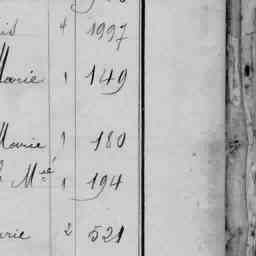 is 4 1997
Marie 1 149
Marie 1 180
Mie 1 194
arie 2 521